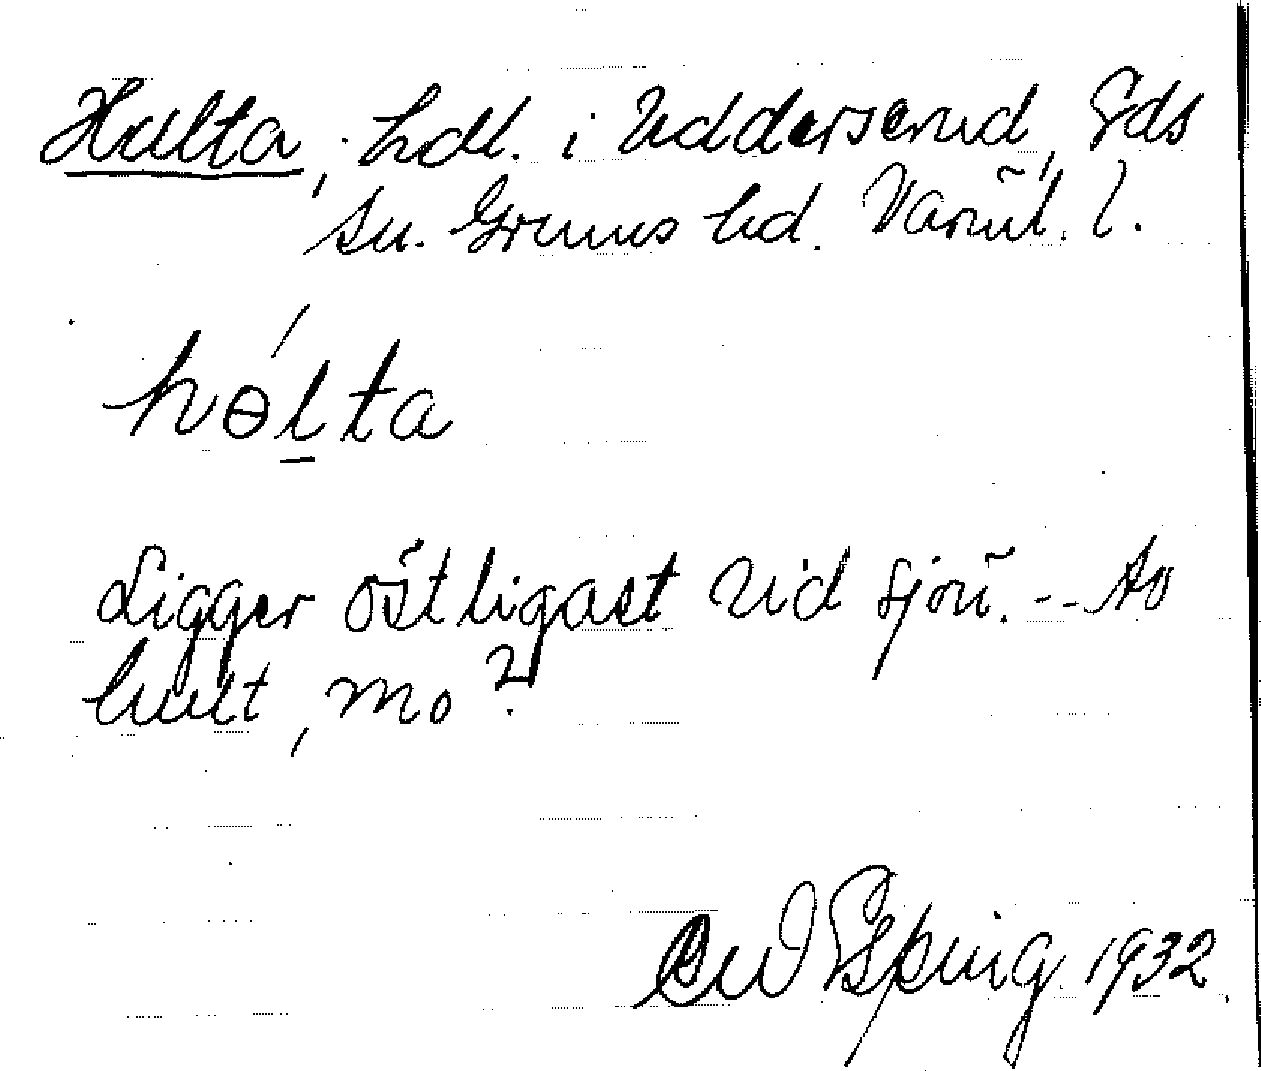 Hulta, hdl. i Udderserud, Eds
sn. Grums hd. Värml. l.
hɵ́l̲ta
Ligger östligast vid sjön. -- Av
hult, mo?
C W Esping 1932.